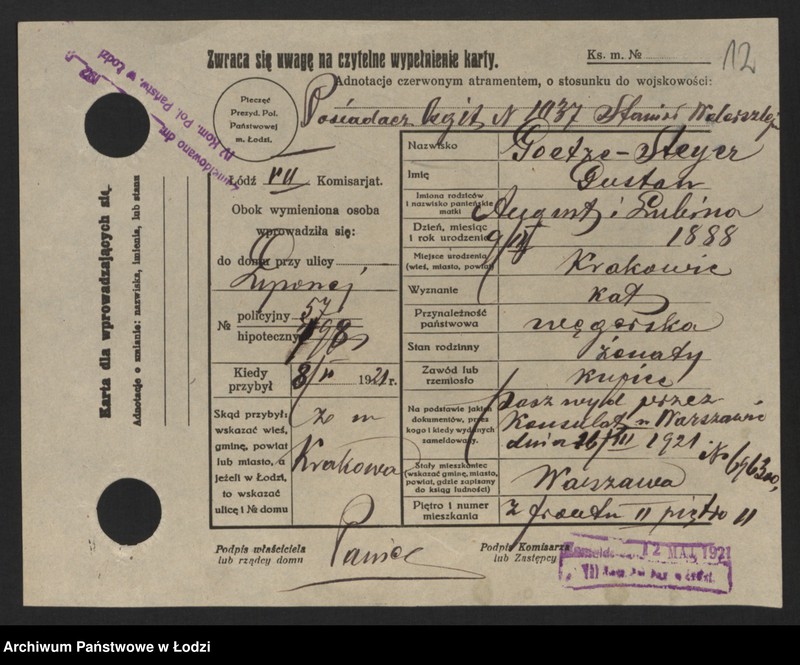 Zwraca się uwagę na czytelne wypełnienie karty.
Ks. m. №
12
Adnotacje czerwonym atramentem, o stosunku do wojskowości:
Pieczęć
Prezyd. Pol.
Państwowej
m. Łodzi.
Posiadacz legit N 1037
Łódź VII Komisarjat.
Obok wymieniona osoba
wprowadziła się:
do domu przy ulicy
Lipowej
№ policyjny 57
hipoteczny
Kiedy przybył 8/V 1921 r.
Skąd przybył:
wskazać wieś,
gminę, powiat
lub miasto, a
jeżeli w Łodzi,
to wskazać
ulicę i № domu
z m
Krakowa
Nazwisko Goetze-Steyer
Imię Gustaw
Imiona rodziców
i nazwisko panieńskie
matki
August i
Dzień, miesiąc
i rok urodzenia
1888
Miejsce urodzenia
(wieś, miasto, powiat)
Krakowie
Wyznanie kat
Przynależność
państwowa
węgerska
Stan rodzinny żonaty
Zawód lub
rzemiosło
kupiec
Na podstawie jakich
dokumentów, przez
kogo i kiedy wydanych
zameldowany.
pasz wyd przez
Konsulat w Warszawie
dnia 26/III 1921
Stały mieszkaniec
(wskazać gminę, miasto,
powiat, gdzie zapisany
do ksiąg ludności)
Warszawa
Piętro i numer
mieszkania
z frontu II piętro 11
Podpis właściciela
lub rządcy domu
Podpis Komisarza
lub Zastępcy
12 MAJ 1921
Karta dla wprowadzających się.
Adnotacje o zmianie: nazwiska, imienia, lub stanu
Zameldowano dn. 192
VII Kom. Pol. Państw. w Łodzi
Archiwum Państwowe w Łodzi